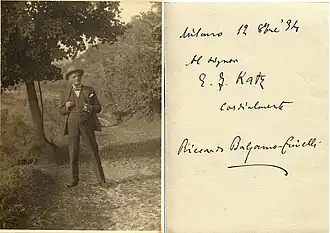 Milano 12 8bre 94
Al Signor
E. J. Katz
Cordialmente
Riccardo Balsamo-Crivelli